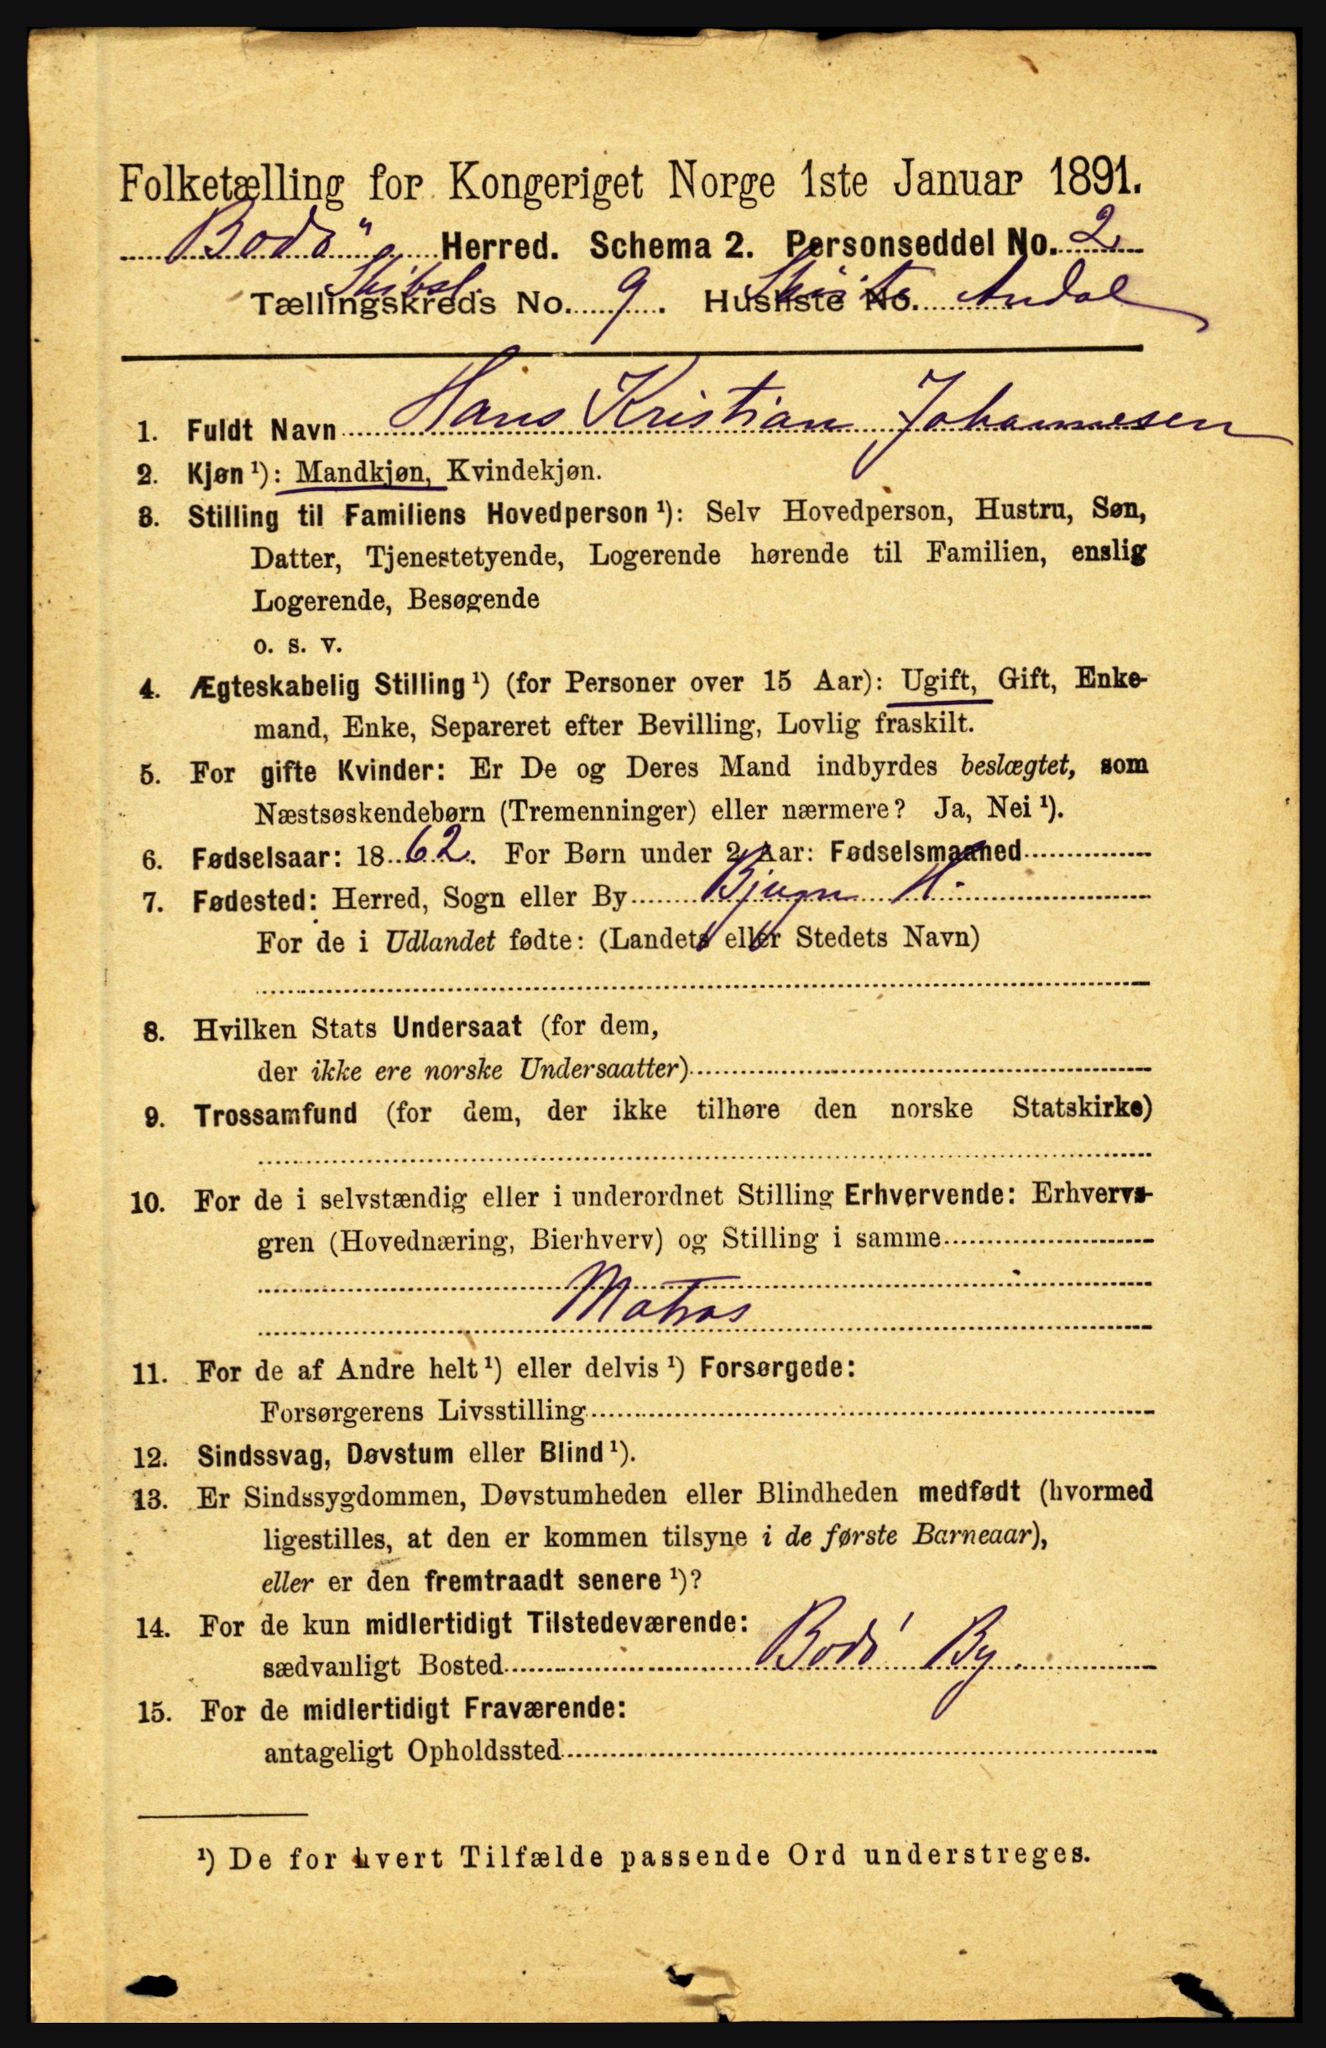 Folketælling for Kongeriget Norge 1ste Januar 1891.
Bodö Herred. Schema 2. Personseddel No. 2
Skibsl. Tællingskreds No. 9. Husliste No. Andal
1. Fuldt Navn Hans Kristian Johannesen
2. Kjøn ¹): Mandkjøn, Kvindekjøn.
3. Stilling til Familiens Hovedperson ¹): Selv Hovedperson, Hustru, Søn,
Datter, Tjenestetyende, Logerende hørende til Familien, enslig
Logerende, Besøgende
o. s. v.
4. Ægteskabelig Stilling ¹) (for Personer over 15 Aar): Ugift, Gift, Enke-
mand, Enke, Separeret efter Bevilling, Lovlig fraskilt.
5. For gifte Kvinder: Er De og Deres Mand indbyrdes beslægtet, som
Næstsøskendebørn (Tremenninger) eller nærmere? Ja, Nei ¹).
6. Fødselsaar: 1862. For Børn under 2 Aar: Fødselsmaaned
7. Fødested: Herred, Sogn eller By Bjugn H.
For de i Udlandet fødte: (Landets eller Stedets Navn)
8. Hvilken Stats Undersaat (for dem,
der ikke ere norske Undersaatter)
9. Trossamfund (for dem, der ikke tilhøre den norske Statskirke)
10. For de i selvstændig eller i underordnet Stilling Erhvervende: Erhvervs-
gren (Hovednæring, Bierhverv) og Stilling i samme
Matros
11. For de af Andre helt ¹) eller delvis ¹) Forsørgede:
Forsørgerens Livsstilling
12. Sindssvag, Døvstum eller Blind ¹).
13. Er Sindssygdommen, Døvstumheden eller Blindheden medfødt (hvormed
ligestilles, at den er kommen tilsyne i de første Barneaar),
eller er den fremtraadt senere ¹)?
14. For de kun midlertidigt Tilstedeværende:
sædvanligt Bosted Bodö By.
15. For de midlertidigt Fraværende:
antageligt Opholdssted
¹) De for hvert Tilfælde passende Ord understreges.